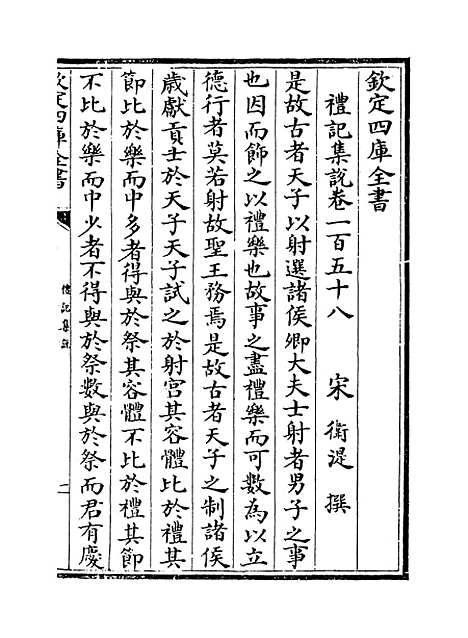 欽定四庫全書
禮記集說卷一百五十八　宋　衛湜　撰
是故古者天子以射選諸侯卿大夫士射者男子之事
也因而飾之以禮樂也故事之盡禮樂而可數為以立
德行者莫若射故聖王務焉是故古者天子之制諸侯
歲獻貢士於天子天子試之於射宮其容體比於禮其
節比於樂而中多者得與於祭其容體不比於禮其節
不比於樂而中少者不得與於祭數與於祭而君有慶
欽定四庫全書
禮記集說
一